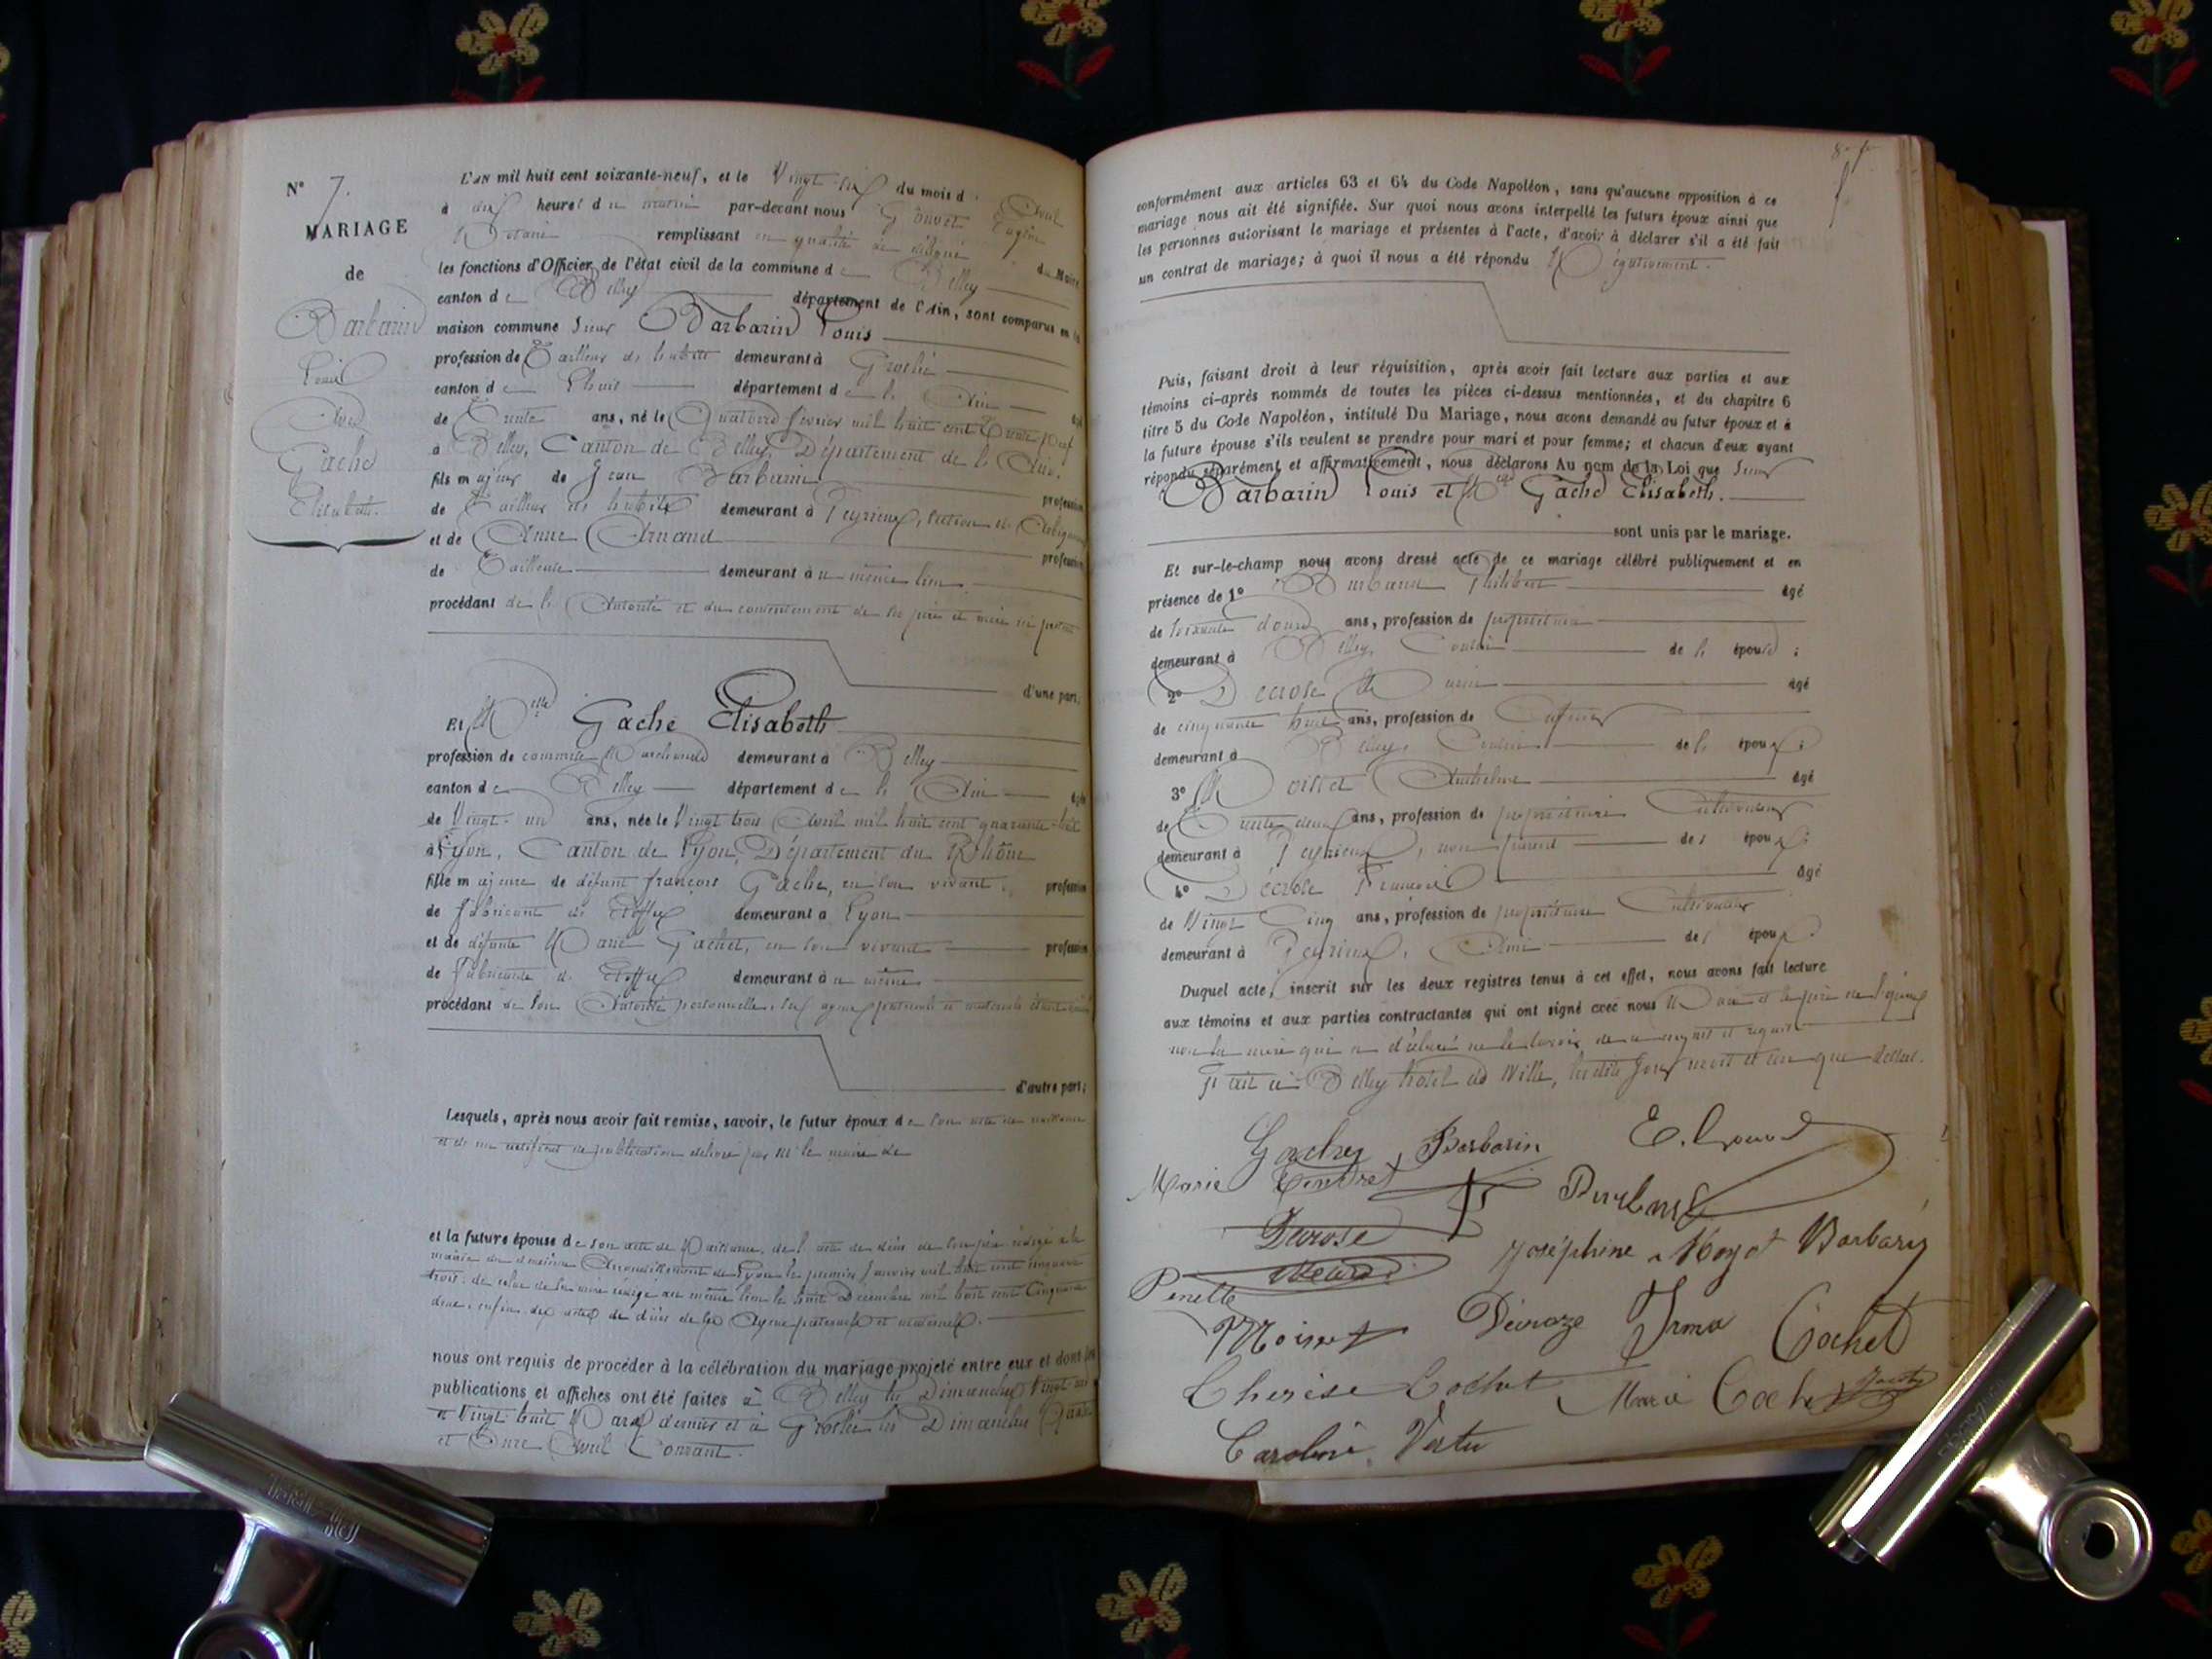 N° 7.
MARIAGE
de
Barbarin
Louis
Avec
Gache
Elisabeth.
L'AN mil huit cent soixante-neuf, et le Vingt-six du mois d' Avril
à dix heures du matin par-devant nous Gouvet Eugène
Notaire remplissant en qualité de délégué du Maire
les fonctions d'Officier de l'état civil de la commune de Belley
canton de Belley département de l'Ain, sont comparus en la
maison commune Sieur Barbarin Louis
profession de Tailleur de habits demeurant à Groslée
canton de Lhuis département de l' Ain âgé
de Trente ans, né le Quatorze février mil huit cent Trente neuf
à Belley, Canton de Belley, Département de l' Ain.
fils majeur de Jean Barbarin profession
de Tailleur de habits demeurant à Peyrieux, section de
et de Anne Arnaud profession
de Tailleuse demeurant à u même lieu
procédant de l' Autorité et du consentement de ses père et mère ici présents
d'une part;
Et Melle Gache Elisabeth
profession de commise Marchande demeurant à Belley
canton de Belley département de l' Ain âgée
de Vingt-un ans, née le Vingt trois Avril mil huit cent quarante-huit
à Lyon, Canton de Lyon, Département du Rhône
fille majeure de défunt françois Gache, en son vivant profession
de fabricant de Etoffes demeurant à Lyon
et de défunte Marie Gachet, en son vivant profession
de Fabricante de Etoffes demeurant à u même
procédant de son Autorité personnelle, ses ayeux paternels et maternels étant
d'autre part;
Lesquels, après nous avoir fait remise, savoir, le futur époux de son acte de naissance
et de un certificat de publication délivré par Mr le maire de
et la future épouse de son acte de Naissance, de l'acte de décès de son père rédigé à la
mairie du deuxième Arrondissement de Lyon le premier Janvier mil huit cent cinquante
trois, de celui de sa mère rédigé au même lieu le huit Décembre mil huit cent Cinquante
deux, enfin des actes de décès de ses Ayeux paternels et maternels.
nous ont requis de procéder à la célébration du mariage projeté entre eux et dont les
publications et affiches ont été faites à Belley les Dimanches Vingt-un
et Vingt-huit Mars dernier et à Groslée les Dimanches Quatre
et Onze Avril Courant.
conformément aux articles 63 et 64 du Code Napoléon, sans qu'aucune opposition à ce
mariage nous ait été signifiée. Sur quoi nous avons interpellé les futurs époux ainsi que
les personnes autorisant le mariage et présentes à l'acte, d'avoir à déclarer s'il a été fait
un contrat de mariage; à quoi il nous a été répondu Négativement.
Puis, faisant droit à leur réquisition, après avoir fait lecture aux parties et aux
témoins ci-après nommés de toutes les pièces ci-dessus mentionnées, et du chapitre 6
titre 5 du Code Napoléon, intitulé Du Mariage, nous avons demandé au futur époux et à
la future épouse s'ils veulent se prendre pour mari et pour femme; et chacun d'eux ayant
répondu séparément et affirmativement, nous déclarons Au nom de la Loi que Sieur
Barbarin Louis et Melle Gache Elisabeth.
sont unis par le mariage.
Et sur-le-champ nous avons dressé acte de ce mariage célébré publiquement et en
présence de 1° Barbarin Philibert âgé
de soixante douze ans, profession de propriétaire
demeurant à Belley, Cousin de l' époux;
2° Decrose âgé
de cinquante huit ans, profession de
demeurant à Belley, Cousin de l' époux;
3° Moiret Anthelme âgé
de Trente deux ans, profession de propriétaire Cultivateur
demeurant à Peyrieux, non parent de s époux;
4° Décrose François âgé
de Vingt Cinq ans, profession de propriétaire Cultivateur
demeurant à Peyrieux, Ami de s époux.
Duquel acte, inscrit sur les deux registres tenus à cet effet, nous avons fait lecture
aux témoins et aux parties contractantes qui ont signé avec nous
non la mère qui a déclaré ne le savoir de ce enquis et requis
fait à Belley hotel de Ville, lesdits jour mois et an que dessus.
Gache Barbarin
Marie
Decrose
Joséphine Moyat Barbarin
Penelle
Moiret Décroze Irma Cochet
Therese Cochet Marie Cochet
Caroline Vertu